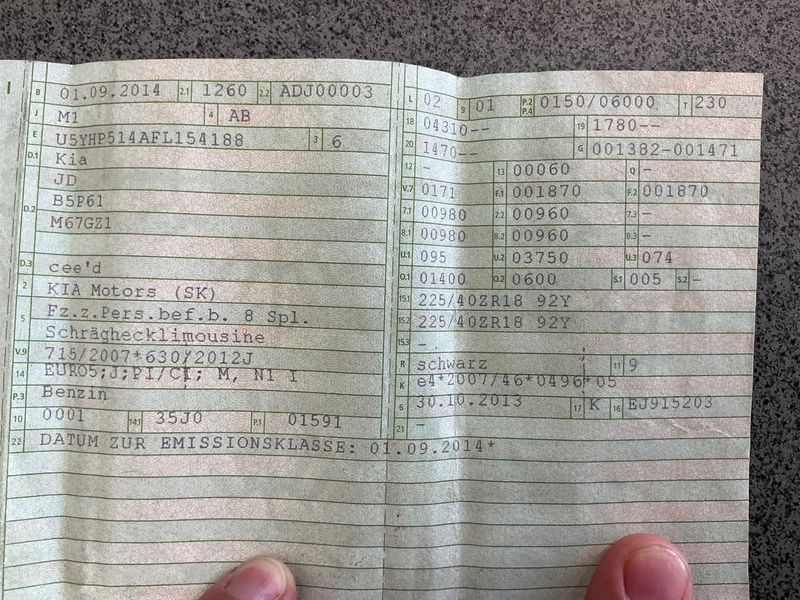 B 01.09.2014 2.1 1260 2.2 ADJ00003
J M1 4 AB
E U5YHP514AFL154188 3 6
D.1 Kia
JD
D.2 B5P61
M67GZ1
D.3 cee'd
2 KIA Motors (SK)
5 Fz.z.Pers.bef.b. 8 Spl.
Schräghecklimousine
V.9 715/2007*630/2012J
14 EURO5;J;PI/CI; M, N1 I
P.3 Benzin
10 0001 14.1 35J0 P.1 01591
22 DATUM ZUR EMISSIONSKLASSE: 01.09.2014*
L 02 9 01 P.2 P.4 0150/06000 T 230
18 04310-- 19 1780--
20 1470-- G 001382-001471
12 - 13 00060 Q -
V.7 0171 F.1 001870 F.2 001870
7.1 00980 7.2 00960 7.3 -
8.1 00980 8.2 00960 8.3 -
U.1 095 U.2 03750 U.3 074
O.1 01400 O.2 0600 S.1 005 S.2 -
15.1 225/40ZR18 92Y
15.2 225/40ZR18 92Y
15.3 -
R schwarz 11 9
K e4*2007/46*0496*05
6 30.10.2013 17 K 16 EJ915203
21 -